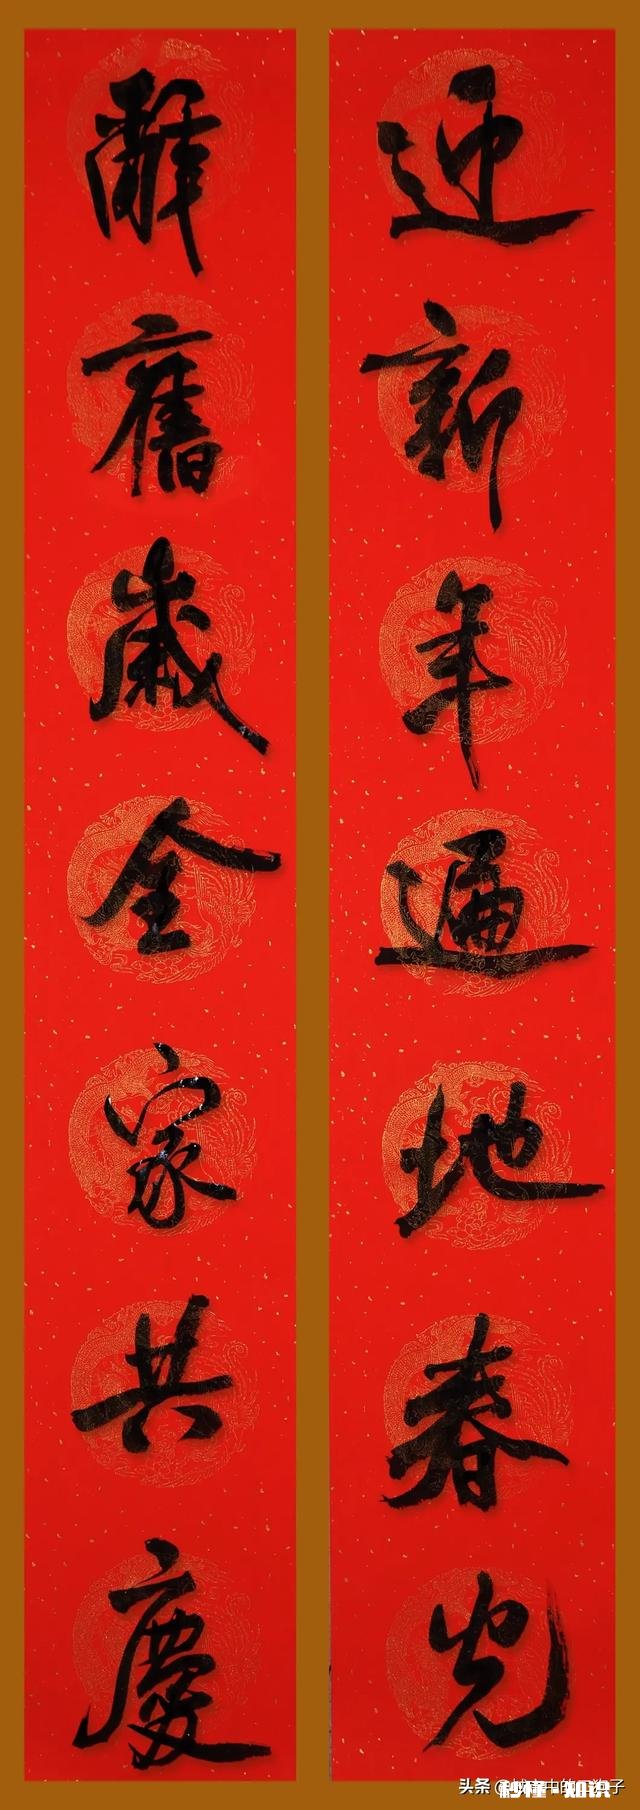 迎新年遍地春光
辭舊歲全家共慶
头条
秒懂·知识